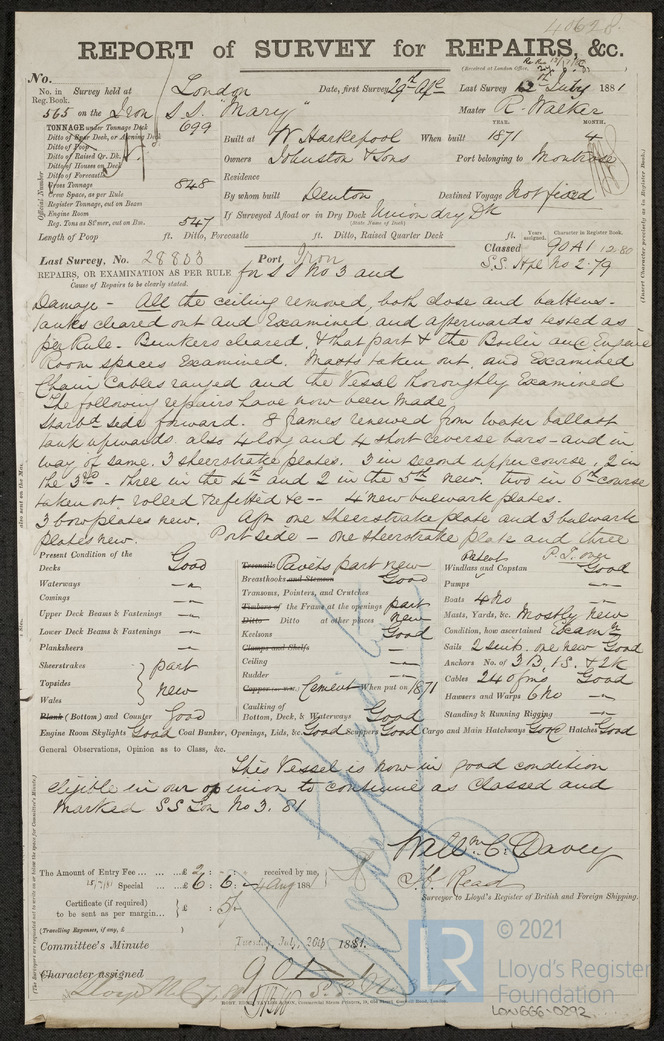 40628
REPORT of SURVEY for REPAIRS, &c.
(Received at London Office,
No.
No. in Reg. Book. Survey held at London Date, first Survey 29th Last Survey 12 July 1881
565 on the Iron S.S. "Mary" Master R. Walker
TONNAGE under Tonnage Deck 699
Ditto of Poop
Ditto of Raised Qr. Dk.
Ditto of Houses on Deck
Ditto of Forecastle
Gross Tonnage 848
Crew Space, as per Rule
Register Tonnage, cut on Beam
Engine Room
Reg. Tons as St'mer, cut on Bm. 547
Official Number
YEAR. MONTH.
Built at W Hartlepool When built 1871 4
Owners Johnston & Sons Port belonging to Montrose
Residence
By whom built Denton Destined Voyage Not fixed
If Surveyed Afloat or in Dry Dock Union dry Dk
(State Name of Dock)
Length of Poop ft. Ditto, Forecastle ft. Ditto, Raised Quarter Deck ft.
Years assigned. Character in Register Book.
Classed 90A1 12.80
S.S. Hpl No 2-79
(Insert Character precisely as in Register Book.)
Last Survey, No. 28803 Port Iron
REPAIRS, OR EXAMINATION AS PER RULE for S S No 3 and
Cause of Repairs to be clearly stated.
Damage - All the ceiling removed, both close and battens -
tanks cleared out and Examined and afterwards tested as
per Rule. Bunkers cleared, & that part & the Boiler and Engine
Room spaces Examined. Masts taken out, and Examined
Chain Cables ranged and the Vessel thoroughly Examined
The following repairs have now been made
Starbd side forward. 8 frames renewed from water ballast
tank upwards also 4 long and 4 short reverse bars - and in
way of same. 3 sheerstrake plates. 3 in second upper course, 2 in
the 3rd - three in the 4th and 2 in the 5th new. two in 6th course
taken out rolled & refitted &c -- 4 new bulwark plates.
3 bow plates new. Aft one sheerstrake plate and 3 bulwark
plates new. Port side - one sheerstrake plate and three
P.T. over
Present Condition of the
Decks Good
Waterways "
Comings "
Upper Deck Beams & Fastenings "
Lower Deck Beams & Fastenings "
Planksheers "
Sheerstrakes
Topsides
Wales
part new
Plank (Bottom) and Counter Good
Treenails Davits part new
Breasthooks and Stemson Good
Transoms, Pointers, and Crutches
Timbers of the Frame at the openings part
Ditto Ditto at other places new
Keelsons Good
Clamps and Shelfs
Ceiling "
Rudder "
Cement When put on 1871
Caulking of
Bottom, Deck, & Waterways Good
Patent
Windlass and Capstan Good
Pumps "
Boats 4 No "
Masts, Yards, &c. Mostly new
Condition, how ascertained Examn
Sails 2 suits. one new Good
Anchors No. of 3 B, 1 S. & 2 K
Cables 240 fms Good
Hawsers and Warps 6 No "
Standing & Running Rigging "
Engine Room Skylights Good Coal Bunker, Openings, Lids, &c. Good Scuppers Good Cargo and Main Hatchways Good Hatches Good
General Observations, Opinion as to Class, &c.
This Vessel is now in good condition
eligible in our opinion to continue as Classed and
marked SS Lon No 3. 81
Willm C. Davey
H. Read
Surveyor to Lloyd's Register of British and Foreign Shipping.
The Amount of Entry Fee ... £ received by me,
Special ... £ 6 : 6 : 4 Aug 188
Certificate (if required) to be sent as per margin... £ : 5/-
(Travelling Expenses, if any, £ )
Committee's Minute Tuesday, July, 26th 1881.
Character assigned 90A1
© 2021
LR
Lloyd's Register
Foundation
LON666-0292